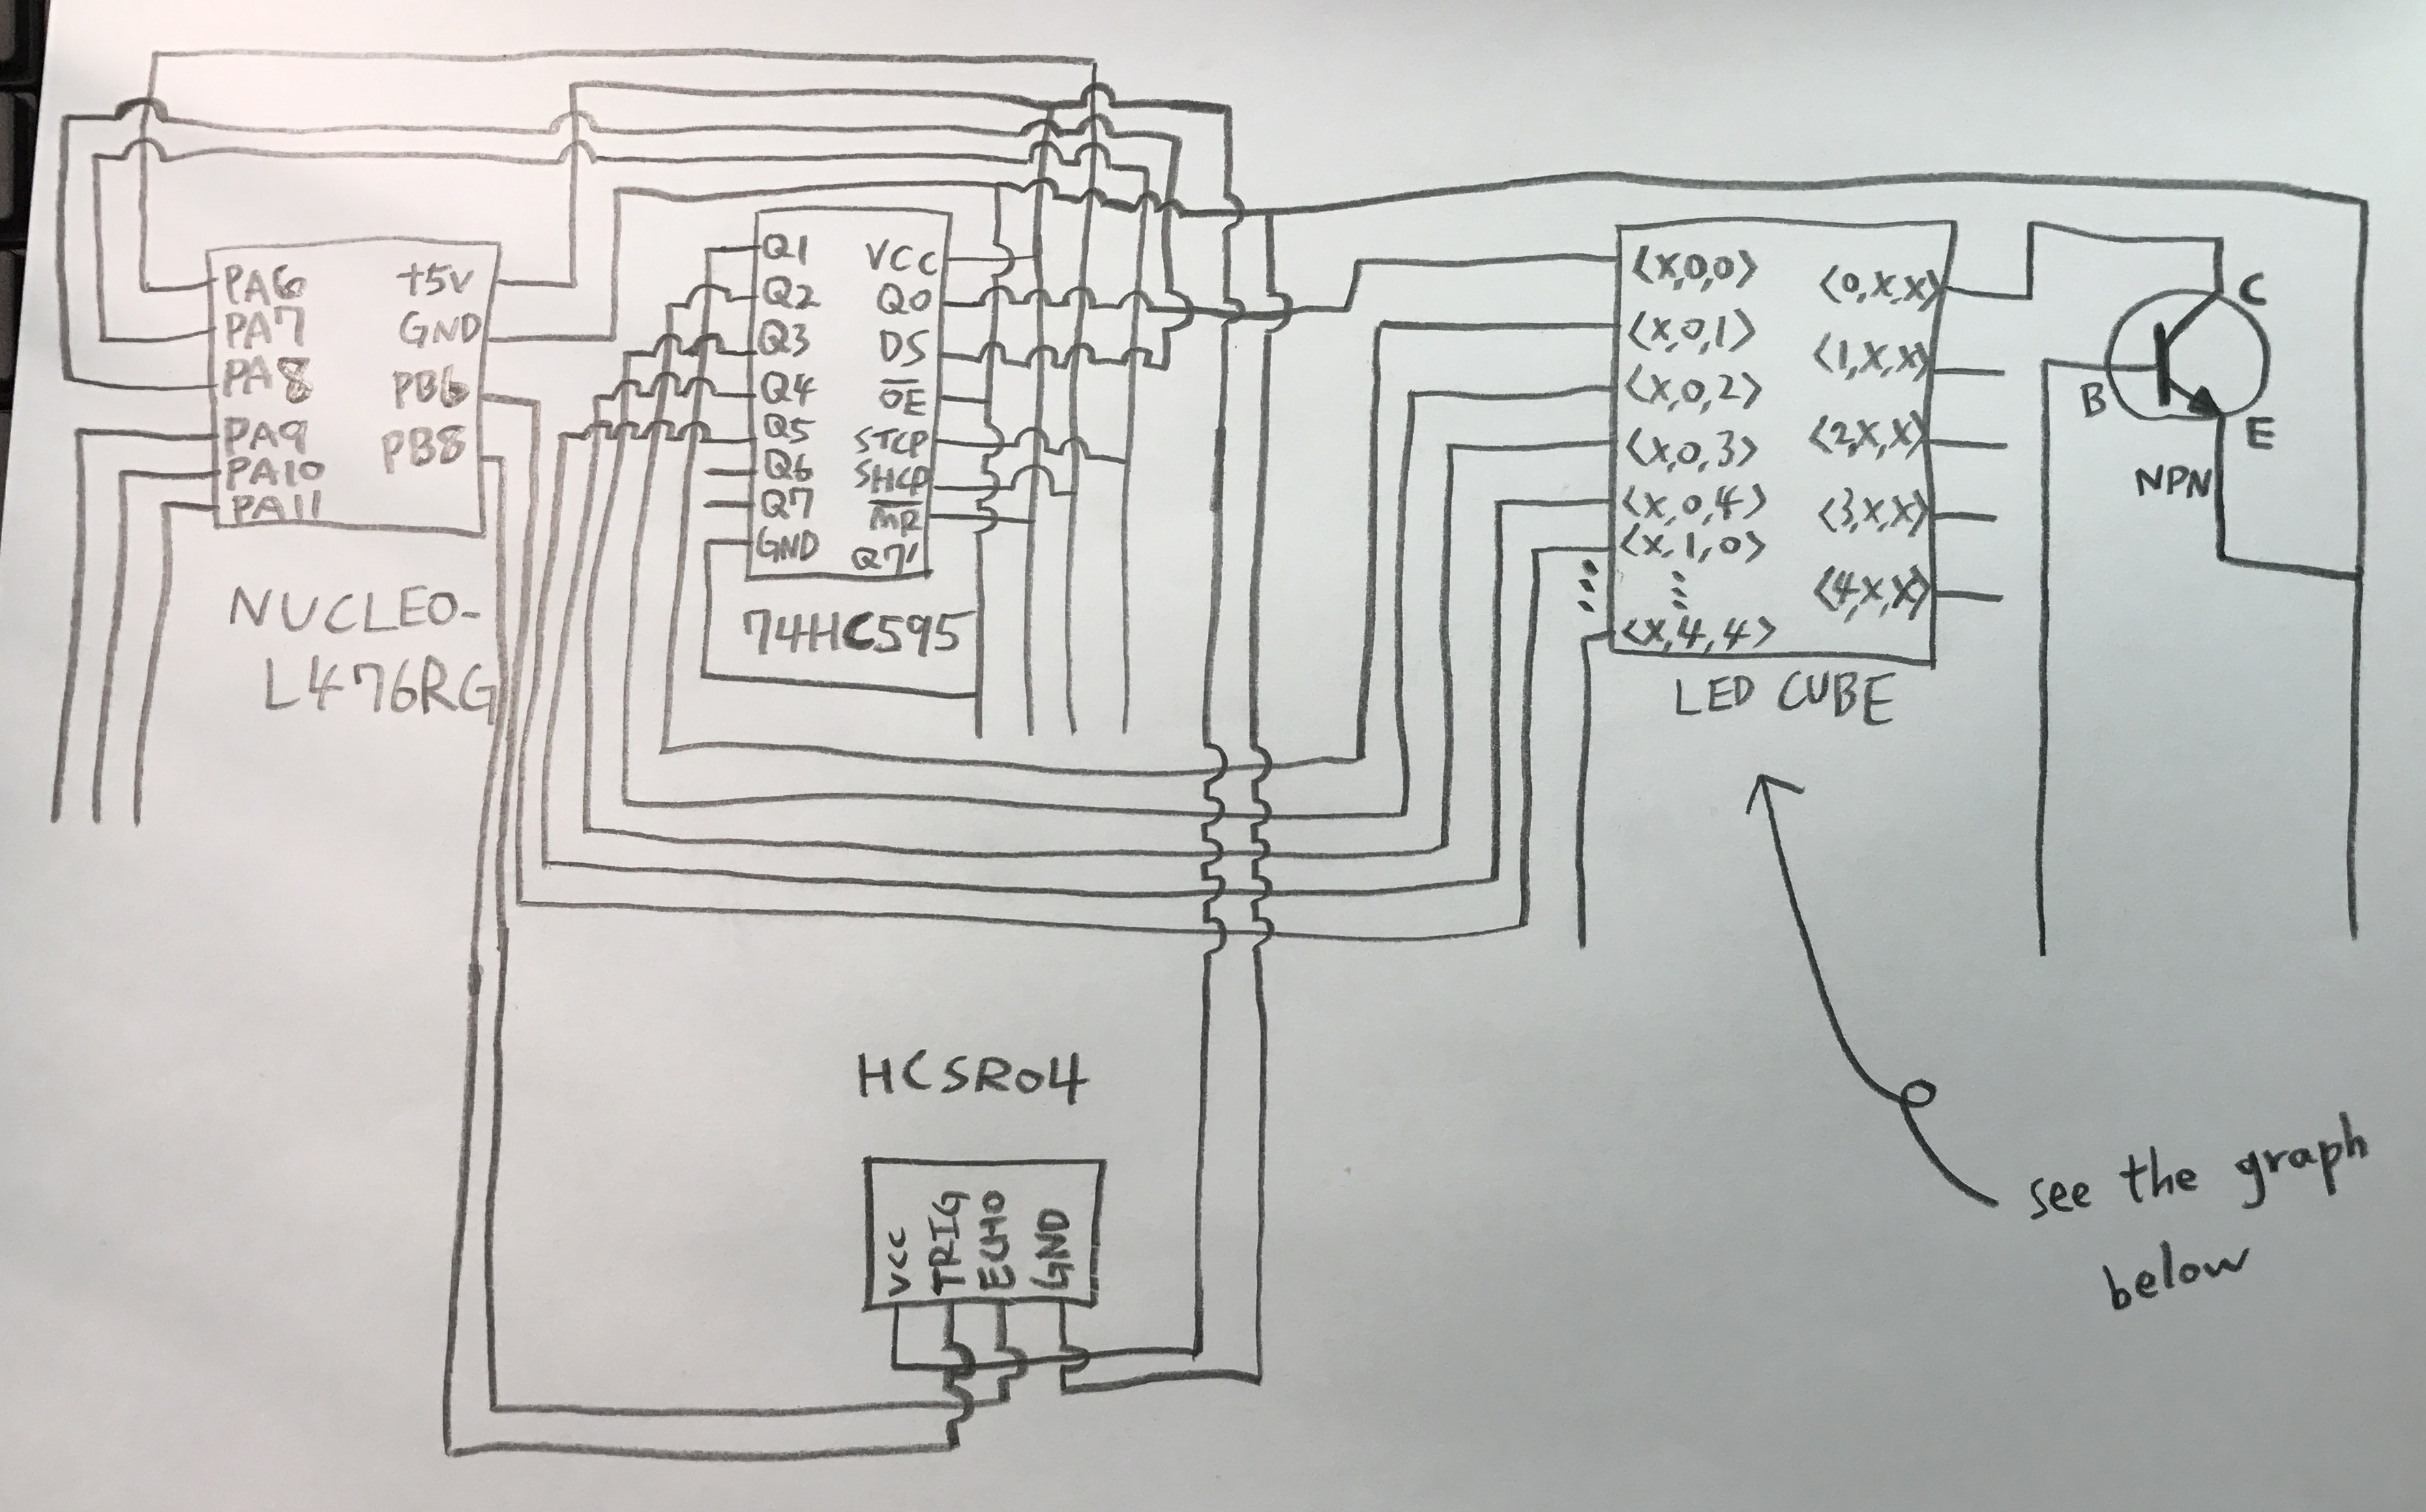 PA6
PA7
PA8
PA9
PA10
PA11
+5V
GND
PB6
PB8
NUCLEO-
L476RG
Q1
Q2
Q3
Q4
Q5
Q6
Q7
GND
VCC
Q0
DS
O̅E̅
STCP
SHCP
M̅R̅
Q7'
74HC595
<x,0,0>
<x,0,1>
<x,0,2>
<x,0,3>
<x,0,4>
<x,1,0>
<x,4,4>
<0,x,x>
<1,x,x>
<2,x,x>
<3,x,x>
<4,x,x>
LED CUBE
C
B
E
NPN
HCSR04
VCC
TRIG
ECHO
GND
see the graph
below